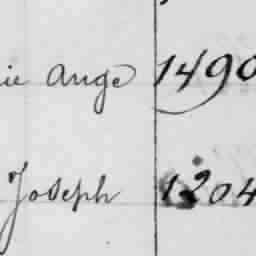 ie Ange 1490
Joseph 1204